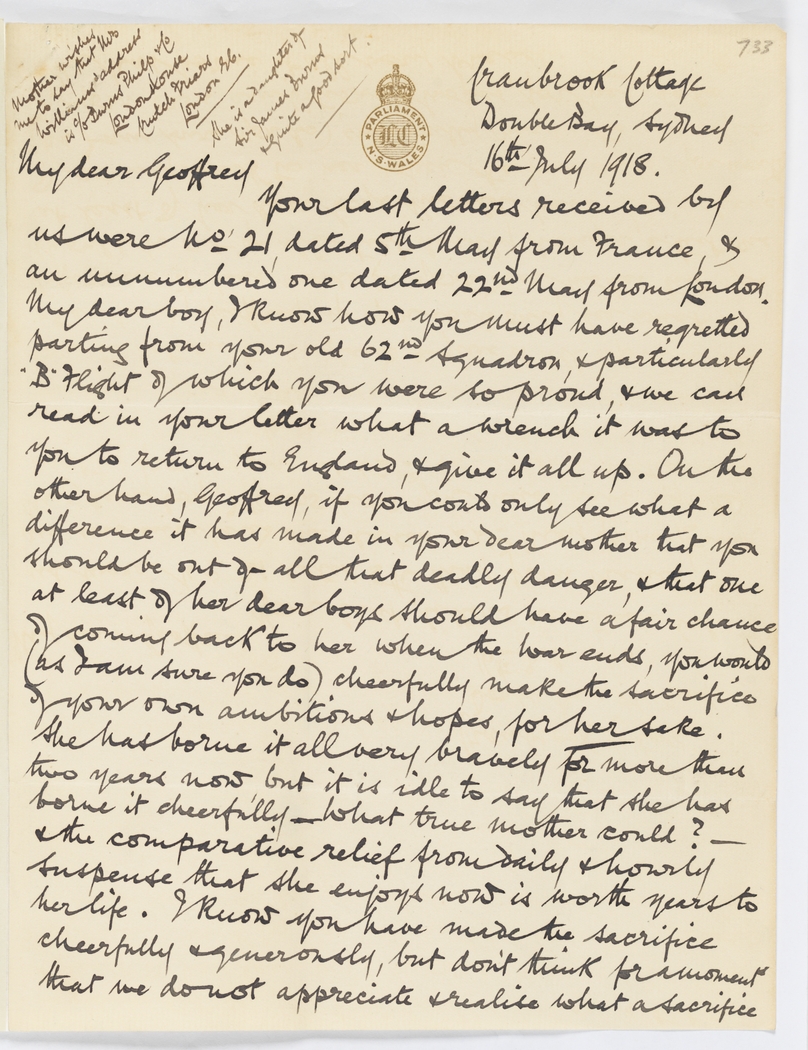 733
Mother wishes
me to say that Mrs
Williams' address
is c/o Burns Philp & Co
London House
Crutch Friars
London E.C.
She is a daughter of
Sir James Burns
& quite a good sort.
PARLIAMENT
LC
N.S. WALES
Cranbrook Cottage
Double Bay, Sydney
16th July 1918.
My dear Geoffrey
Your last letters received by
us were No 21, dated 5th May from France, &
an unnumbered one dated 22nd May from London.
My dear boy, I know how you must have regretted
parting from your old 62nd Squadron, & particularly
"B" Flight of which you were so proud, & we can
read in your letter what a wrench it was to
you to return to England, & give it all up. On the
other hand, Geoffrey, if you could only see what a
difference it has made in your dear mother that you
should be out of all that deadly danger, & that one
at least of her dear boys should have a fair chance
of coming back to her when the war ends, you would
(as I am sure you do) cheerfully make the sacrifice
of your own ambitions & hopes, for her sake.
She has borne it all very bravely for more than
two years now, but it is idle to say that she has
borne it cheerfully — what true mother could? —
& the comparative relief from daily & hourly
suspense that she enjoys now is worth years to
her life. I know you have made the sacrifice
cheerfully & generously, but don't think for a moment
that we do not appreciate & realise what a sacrifice